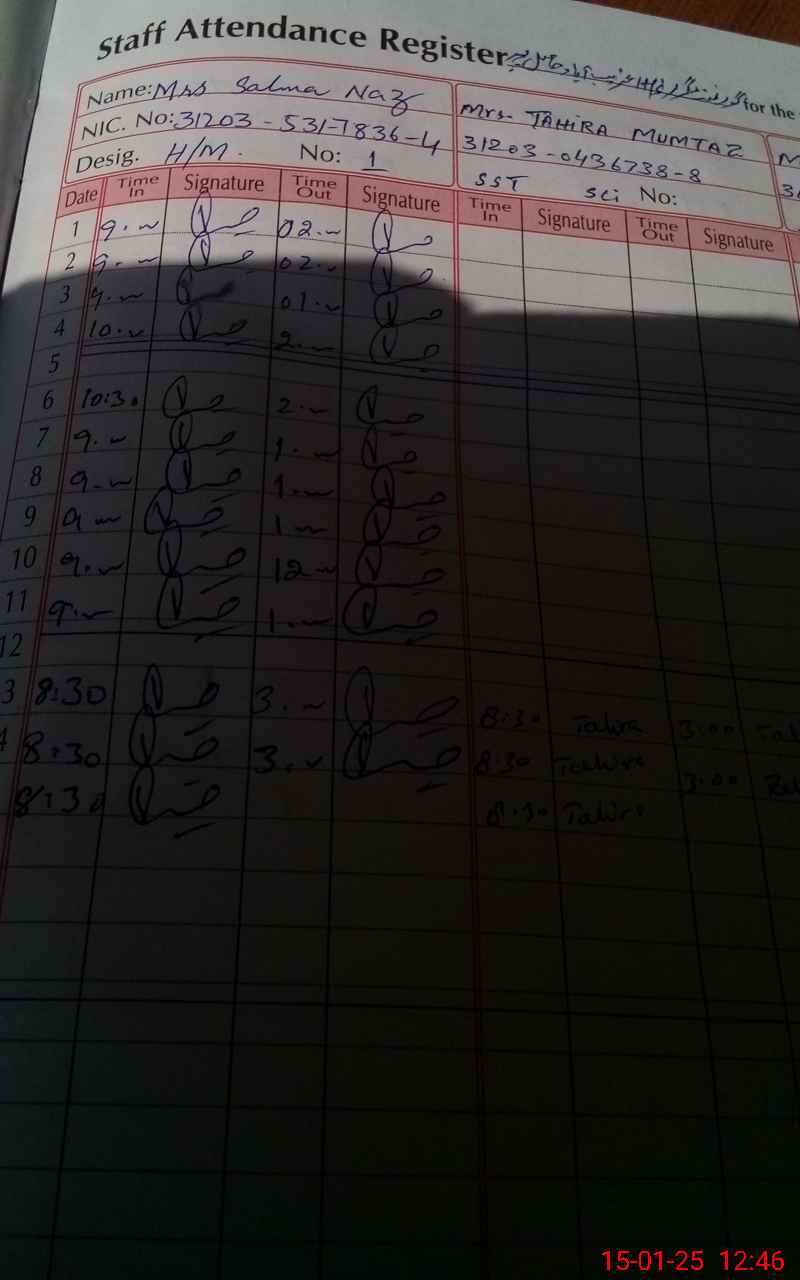 Staff Attendance Register for the
Name: Mrs Salma Naz
NIC. No: 31203-531-7836-4
Desig. H/M. No: 1
Mrs. TAHIRA MUMTAZ
31203-0436738-8
SST Sci No:
Date Time In Signature Time Out Signature Time In Signature Time Out Signature
1 9. 02.
2 9. 02.
3 9. 01.
4 10. 2.
5
6 10:30 2.
7 9. 1.
8 9. 1.
9 9 1
10 9. 12
11 9. 1.
12
3 8:30 3. 8:30 Tahira 3:00
4 8:30 3. 8:30 Tahira 3:00
8:30 8:30 Tahira
15-01-25 12:46